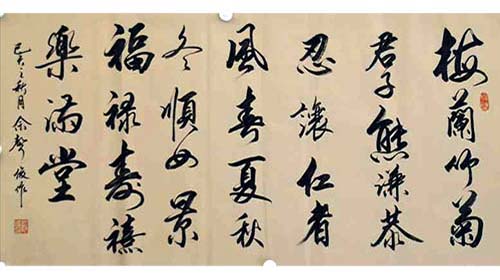 梅蘭竹菊
君子態謙恭
忍讓仁者
風春夏秋
冬順如景
福祿壽禧
樂滿堂
己亥之秋月 余聲俊作